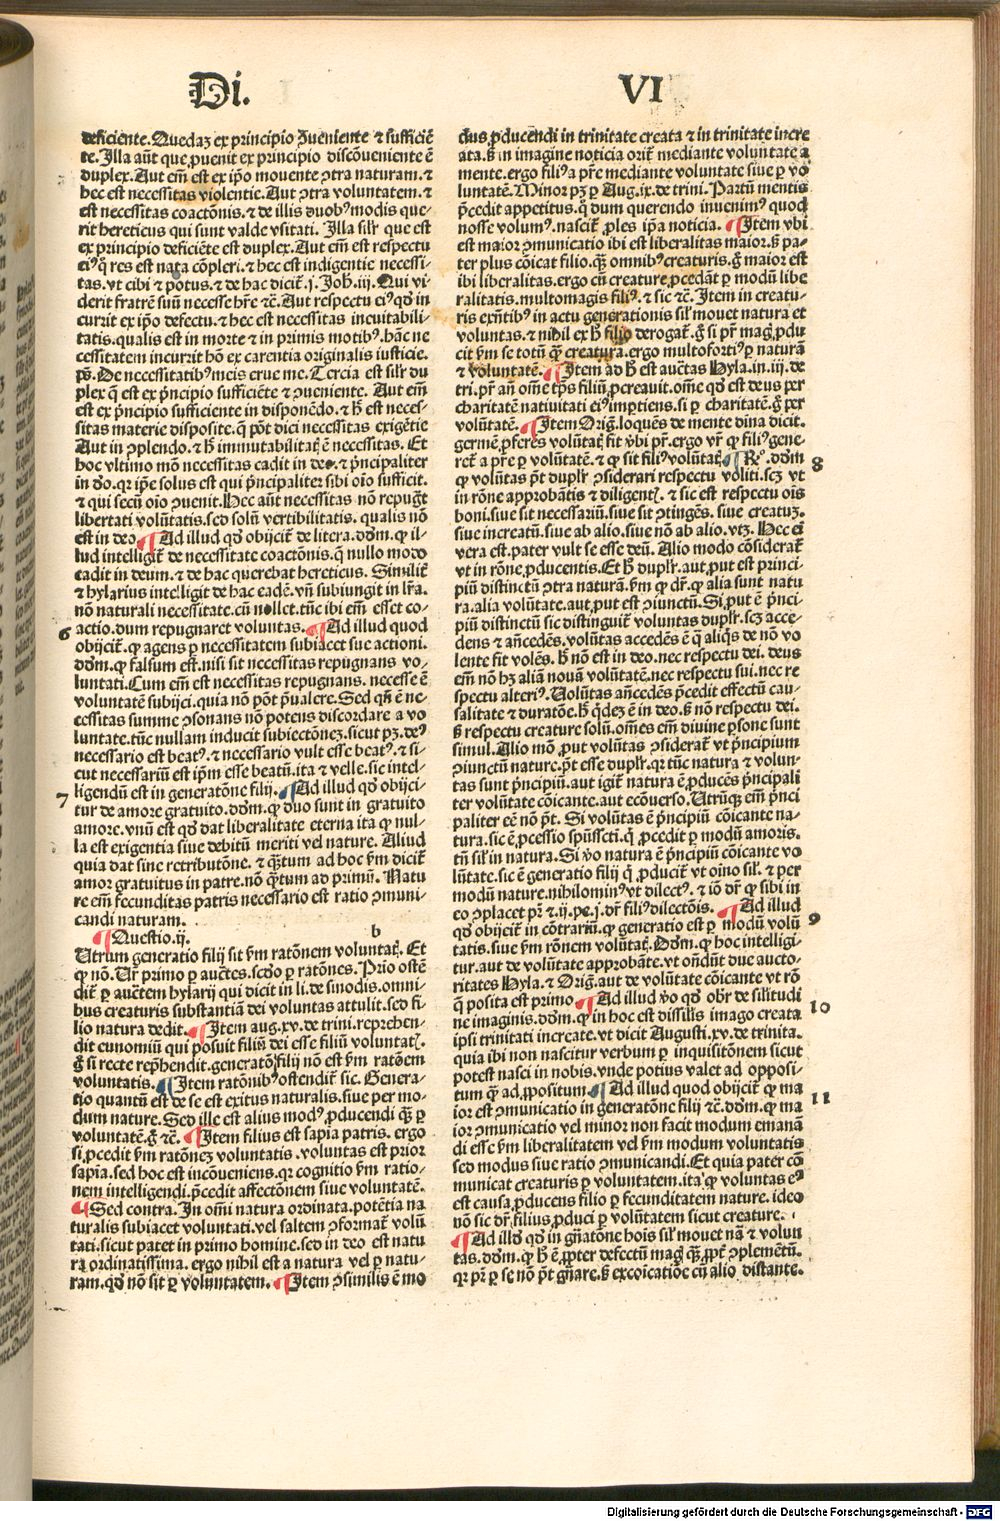 Di.
VI
deficiente. Quedaꝫ ex principio ꝯueniente ⁊ sufficiē
te. Illa aūt que ꝓuenit ex principio discōueniente ē
duplex. Aut em̄ est ex ip̄o mouente ꝯtra naturam. ⁊
hec est necessitas violentie. Aut ꝯtra voluntatem. ⁊
est necessitas coactōnis. ⁊ de illis duobꝰ modis que-
rit hereticus qui sunt valde vsitati. Illa silr̄ que est
ex principio deficiēte est duplex. Aut em̄ est respectu
eiꝰ q̄ res est nata cōpleri. ⁊ hec est indigentie necessi-
tas. vt cibi ⁊ potus. ⁊ de hac dicit̄ .j. Joh. iij. Qui vi-
derit fratrē suū necesse hr̄e ⁊c̄. Aut respectu eiꝰ qd̓ in
currit ex ip̄o defectu. ⁊ hec est necessitas ineuitabili-
tatis. qualis est in morte ⁊ in primis motibꝰ. hāc ne
cessitatem incurrit hō ex carentia originalis iusticie.
pꝭ. De necessitatibꝰ meis erue me. Tercia est silr̄ du
plex q̄ est ex pͥncipio sufficiēte ⁊ ꝯueniente. Aut em̄
est ex pͥncipio sufficiente in disponēdo. ⁊ h̄ est neces-
sitas materie disposite. q̄ pōt dici necessitas exigētie
Aut in ꝯplendo. ⁊ h̄ immutabilitatꝭ ē necessitas. Et
hoc vltimo mō necessitas cadit in deo. ⁊ pͥncipaliter
in dō. qꝛ ip̄e solus est qui pͥncipaliter sibi oīo sufficit.
⁊ qui secū oīo ꝯuenit. Hec aūt necessitas nō repugt̄
libertati volūtatis. sed solū vertibilitatis. qualis nō
est in deo. ¶ Ad illud qd̓ obijcit̄ de litera. dd̓m. ꝙ il-
lud intelligit̄ de necessitate coactōnis. q̄ nullo modo
cadit in deum. ⁊ de hac querebat hereticus. Similit̄
⁊ hylarius intelligit de hac eadē. vn̄ subiungit in lr̄a.
nō naturali necessitate. cū nollet. tūc ibi em̄ esset co-
actio. dum repugnaret voluntas. ¶ Ad illud quod
6
obijcit̄. ꝙ agens ꝑ necessitatem subiacet sue actioni.
dd̓m. ꝙ falsum est. nisi sit necessitas repugnans vo-
luntati. Cum em̄ est necessitas repugnans. necesse ē
voluntatē subijci. quia nō pōt pͥualere. Sed qn̄ ē ne-
cessitas summe ꝯsonans nō potens discordare a vo
luntate. tūc nullam inducit subiectōneꝫ. sicut pꝫ. deꝰ
necessario est beatꝰ. ⁊ necessario vult esse beatꝰ. ⁊ si-
cut necessariū est ip̄m esse beatū. ita ⁊ velle. sic intel-
ligendū est in generatōne filij. ¶ Ad illud qd̓ obijci-
7
tur de amore gratuito. dd̓m. ꝙ duo sunt in gratuito
amore. vnū est qd̓ dat liberalitate eterna ita ꝙ nul-
la est exigentia siue debitū meriti vel nature. Aliud
quia dat sine retributōne. ⁊ qꝫtum ad hoc ẜm dicit̄
amor gratuitus in patre. nō qꝫtum ad primū. Natu
re em̄ fecunditas patris necessario est ratio ꝯmuni-
candi naturam.
¶ Questio .ij. b
Utrum generatio filij sit ẜm ratōnem voluntatꝭ. Et
ꝙ nō. Vr̄ primo ꝑ auctes. scd̓o ꝑ ratōnes. Prio ostē
dit̄ ꝑ auctem hylarij qui dicit in li. de sinodis. omni-
bus creaturis substantiā dei voluntas attulit. sed fi-
lio natura dedit. ¶ Item aug. xv. de trini. reprehen-
dit eunomiū qui posuit filiū dei esse filiū voluntatꝭ.
g̊ si recte rep̄hendit. generatō filij nō est ẜm ratōem
voluntatis. ¶ Item ratōnibꝰ ostendit̄ sic. Genera-
tio quantū est de se est exitus naturalis. siue per mo-
dum nature. Sed ille est alius modꝰ ꝓducendi qꝫ ꝑ
voluntatē. g̊ ⁊c̄. ¶ Item filius est sapia patris. ergo
si ꝓcedit ẜm ratōneꝫ voluntatis. voluntas est prior
sapia. sed hoc est incōueniens. qꝛ cognitio ẜm ratio-
nem intelligendi. pͥcedit affectōnem siue voluntatē.
¶ Sed contra. In omī natura ordinata. potētia na
turalis subiacet voluntati. vel saltem ꝯformat̄ volū
tati. sicut patet in primo homine. sed in deo est natu
ra ordinatissima. ergo nihil est a natura vel ꝑ natu-
ram. qd̓ nō sit ꝑ voluntatem. ¶ Item ꝯsimilis ē mo
dus ꝓducendi in trinitate creata ⁊ in trinitate incre
ata. sꝫ in imagine noticia orit̄ mediante voluntate a
mente. ergo filiꝰ a pr̄e mediante voluntate siue ꝑ vo
luntatē. Minor pꝫ ꝑ Aug. ix. de trini. Partū mentis
pͥcedit appetitus. q̊ dum querendo inuenimꝰ quod
nosse volumꝰ. nascit̄ ꝓles ip̄a noticia. ¶ Item vbi
est maior ꝯmunicatio ibi est liberalitas maior. sꝫ pa-
ter plus cōicat filio. qꝫ omnibꝰ creaturis. g̊ maior est
ibi liberalitas. ergo cū creature ꝓcedāt ꝑ modū libe
ralitatis. multomagis filiꝰ. ⁊ sic ⁊c̄. Item in creatu-
ris exn̄tibꝰ in actu generationis sil̓ mouet natura et
voluntas. ⁊ nihil ex h̄ filio derogat̄. g̊ si pr̄ magꝭ ꝓdu
cit ẜm se totū qꝫ creatura. ergo multofortiꝰ ꝑ naturā
⁊ voluntatē. ¶ Item ad h̄ est auctas Hyla. in. iij. de
tri. pr̄ an̄ om̄e tp̄s filiū ꝓcreauit. om̄e qd̓ est deus per
charitatē natiuitati eiꝰ imptiens. si ꝑ charitatē. g̊ per
volūtatē. ¶ Item Orig̓. loquēs de mente dīna dicit.
germē ꝓferēs volūtatꝭ fit v̓bi pr̄. ergo vr̄ ꝙ filiꝰ gene-
ret̄ a pr̄e ꝑ volūtatē. ⁊ ꝙ sit filiꝰ volūtatꝭ. ¶ Rº. dd̓m
8
ꝙ voluntas pōt duplr̄ ꝯsiderari respectu voliti. scꝫ vt
in rōne approbātis ⁊ diligentꝭ. ⁊ sic est respectu oīs
boni. siue sit necessariū. siue sit ꝯtingēs. siue creatuꝫ.
siue increatū. siue ab alio. siue nō ab alio. vtꝫ. Hec em̄
vera est. pater vult se esse deū. Alio modo cōsiderat̄
vt in rōne ꝓducentis. Et h̄ duplr̄. aut put est princi-
piū distinctū ꝯtra naturā. ẜm ꝙ dr̄. ꝙ alia sunt natu
ra. alia volūtate. aut put est ꝯiunctū. Si put ē pͥnci-
piū distinctū sic distinguit̄ voluntas duplr̄. scꝫ acce-
dens ⁊ an̄cedēs. volūtas accedēs ē q̄ aliqͥs de nō vo
lente fit volēs. h̄ nō est in deo. nec respectu dei. deus
em̄ nō hꝫ aliā nouā volūtatē. nec respectu sui. nec re
spectu alteriꝰ. Uolūtas an̄cedēs pͥcedit effectū cau-
salitate ⁊ duratōne. h̄ qͥdeꝫ ē in deo. sꝫ nō respectu dei.
sꝫ respectu creature solū. om̄es em̄ diuine ꝑsone sunt
simul. Alio mō put volūtas ꝯsiderat̄ vt pͥncipium
ꝯiunctū nature. pōt esse duplr̄. qꝛ tūc natura ⁊ volun-
tas sunt pͥncipiū. aut igit̄ natura ē ꝓducēs pͥncipali
ter volūtate cōicante. aut ecōuerso. Utrūqꝫ em̄ pͥnci
paliter eē nō pōt. Si volūtas ē pͥncipiū cōicante na-
tura. sic ē ꝓcessio sp̄ussctī. q̄ ꝓcedit ꝑ modū amoris.
tn̄ sil̓ in natura. Si v̓o natura ē pͥncipiū cōicante vo
lūtate. sic ē generatio filij q̄ ꝓducit̄ vt oīno sil̓. ⁊ per
modū nature. nihilominꝰ vt dilectꝰ. ⁊ iō dr̄ ꝙ sibi in
eo ꝯplacet pr̄i ⁊ .ij. pe. j. dr̄ filiꝰ dilectōis. ¶ Ad illud
9
qd̓ obijcit̄ in cōtrariū. ꝙ generatio est ꝑ modū volū
tatis. siue ẜm rōnem volūtatꝭ. Dd̓m. ꝙ hoc intelligi-
tur. aut de volūtate approbāte. vt ondūt due aucto-
ritates Hyla. ⁊ Orig̓. aut de volūtate cōicante vt rō
q̄ posita est primo. ¶ Ad illud v̓o qd̓ obr̄ de sil̓itudi
10
ne imaginis. dd̓m. ꝙ in hoc est dissil̓is imago creata
ipsi trinitati increate. vt dicit Augusti. xv. de trinita.
quia ibi non nascitur verbum ꝑ inquisitōnem sicut
potest nasci in nobis. vnde potius valet ad opposi-
tum qꝫ ad ꝓpositum. ¶ Ad illud quod obijcit̄ ꝙ ma
11
ior est ꝯmunicatio in generatōne filij ⁊c̄. dd̓m. ꝙ ma
ior ꝯmunicatio vel minor non facit modum emanā
di esse ẜm liberalitatem vel ẜm modum voluntatis
sed modus siue ratio ꝯmunicandi. Et quia pater cō
municat creaturis ꝑ voluntatem. ita ꝙ voluntas eꝰ
est causa. ꝓducens filio ꝑ fecunditatem nature. ideo
nō sic dr̄. filius ꝓduci ꝑ volūtatem sicut creature.
¶ Ad illd̓ qd̓ in gn̄atōne hoīs sil̓ mouet nā ⁊ volun
tas. dd̓m. ꝙ h̄ ē ꝓpter defectū magꝭ qꝫ ꝓpt̄ ꝯplemētū.
qꝛ pr̄ ꝑ se nō pōt gn̄are. sꝫ excoīcatiōe cū alio distante.
Digitalisierung gefördert durch die Deutsche Forschungsgemeinschaft - DFG